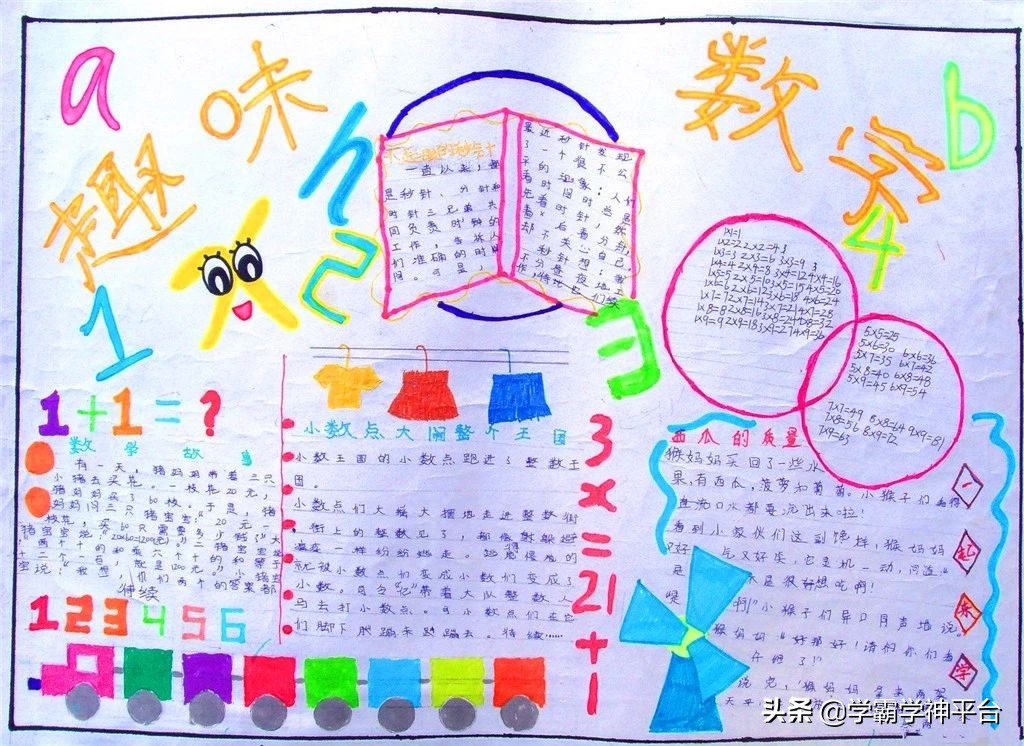 a
趣味
数学
b
h
1
2
3
4
一直以来，
是秒针、分针和
时针三兄弟共
同负责时钟的
工作，告诉人
们准确的时
间。可是
最近秒针发现
了一个很不公
平的现象：人们
看时间时总是
先看时针，
看后看分针，
却不关心自己。
秒针想：
不分昼夜地工
作，
1×1=1
1×2=2 2×2=4
1×3=3 2×3=6 3×3=9
1×4=4 2×4=8 3×4=12 4×4=16
1×5=5 2×5=10 3×5=15 4×5=20
1×6=6 2×6=12 3×6=18 4×6=24
1×7=7 2×7=14 3×7=21 4×7=28
1×8=8 2×8=16 3×8=24 4×8=32
1×9=9 2×9=18 3×9=27 4×9=36
5×5=25
5×6=30 6×6=36
5×7=35 6×7=42
5×8=40 6×8=48
5×9=45 6×9=54
7×7=49 8×8=64 9×9=81
7×8=56 8×9=72
7×9=63
1+1=?
数学故事
有一天，猪妈妈带着三只
小猪去买花。一枝花20元，
猪妈妈买了60枝。于是，猪
妈妈问三只猪宝宝：“20元一
枝花，买60只需要多少钱？”大
猪宝宝说：“20×60=1200元”
待续
小数点大闹整个王国
小数王国的小数点跑进了整数王
国。
小数点们大摇大摆地走进整数街
，街上的整数见了，都像躲避
瘟疫一样纷纷逃走。
就被小数点们变成小数们变成了
小数。司令“亿”带着大队整数人
马去打小数点。可小数点们在它
们脚下
待续……
3
x
=
21
+
1
西瓜的质量
猴妈妈买回了一些水
果，有西瓜，菠萝和葡萄。小猴子们
连口水都要流出来啦！
看到小家伙们这副馋样，猴妈妈
又好气又好笑，它灵机一动，问道：“
是不是很想吃啊！
啊！”小猴子们异口同声地说。
猴妈妈“好那好！请的你们
说完，猴妈妈拿来两架
天平
一
起
来
学
1 2 3 4 5 6
头条 @学霸学神平台